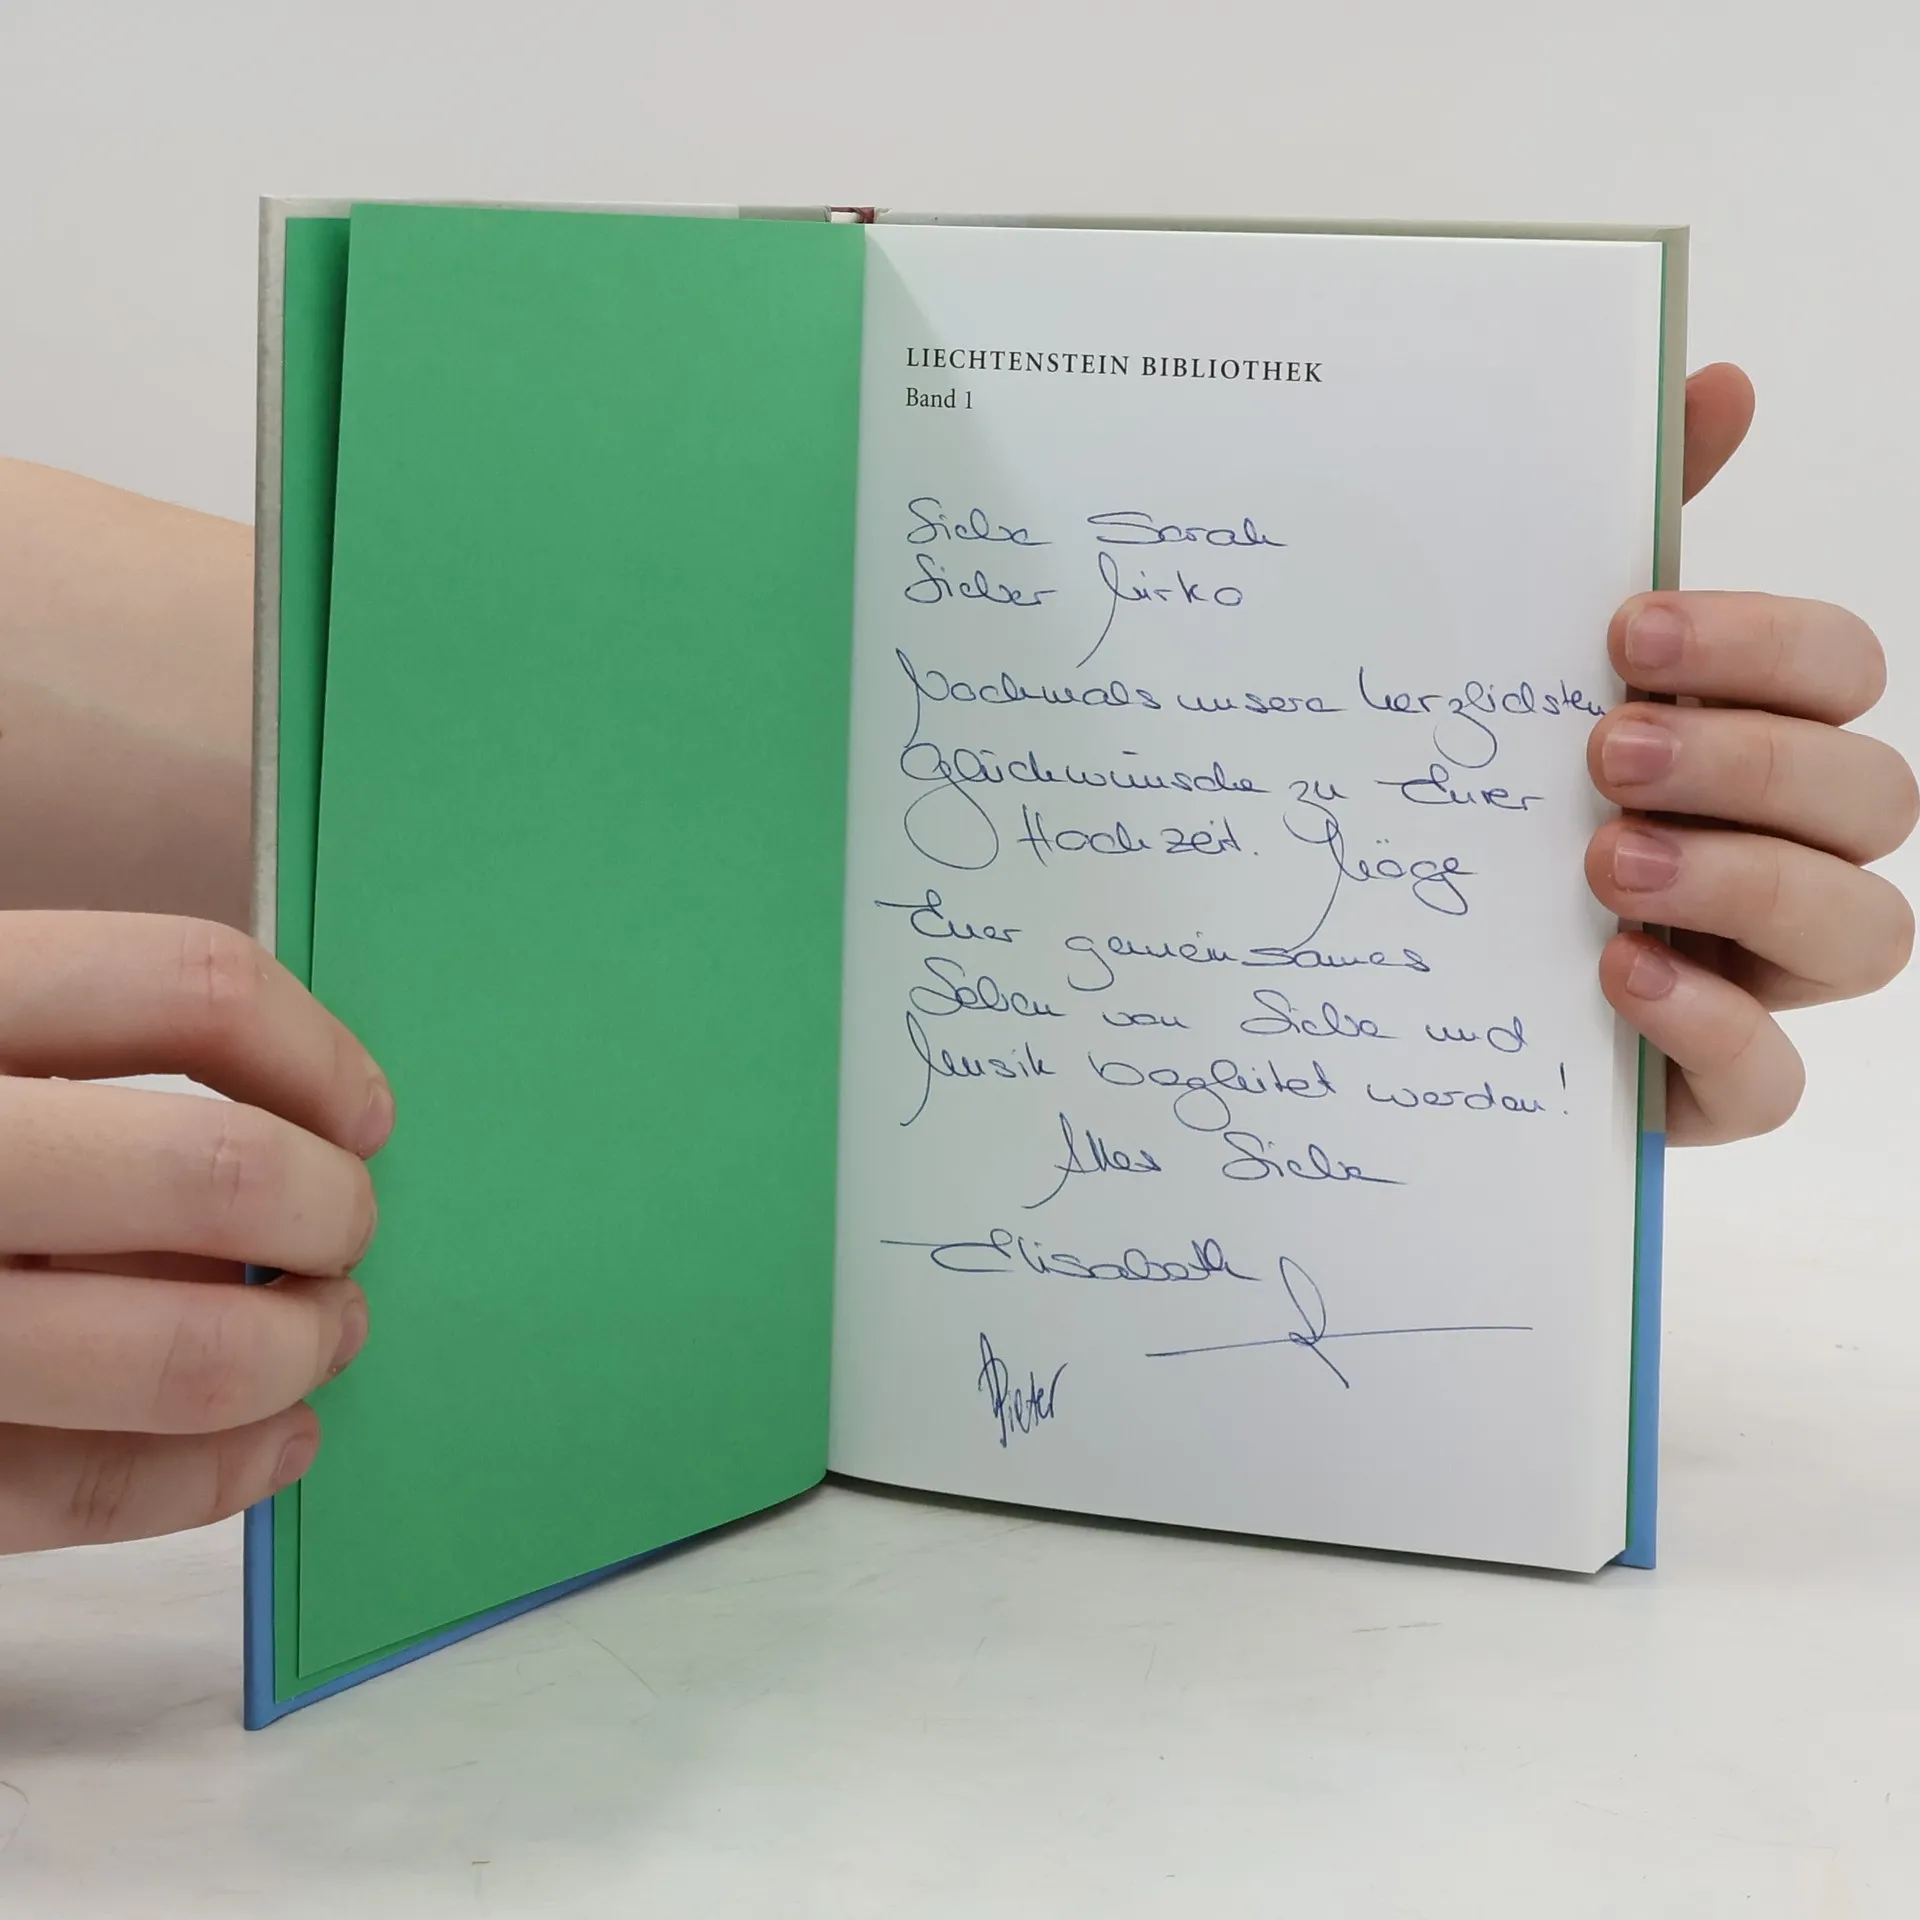 LIECHTENSTEIN BIBLIOTHEK
Band 1
Liebe Sarah
Lieber Mirko
Nochmals unsere herzlichsten
Glückwünsche zu Eurer
Hochzeit. Möge
Euer gemeinsames
Leben von Liebe und
Musik begleitet werden!
Alles Liebe
Elisabeth
Pieter